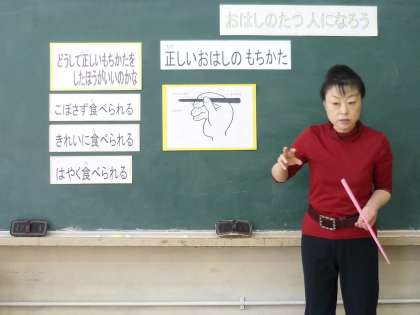 おはしのたつ人になろう
正しいおはしの もちかた
どうして正しいもちかたを
したほうがいいのかな
こぼさず食べられる
きれいに食べられる
はやく食べられる